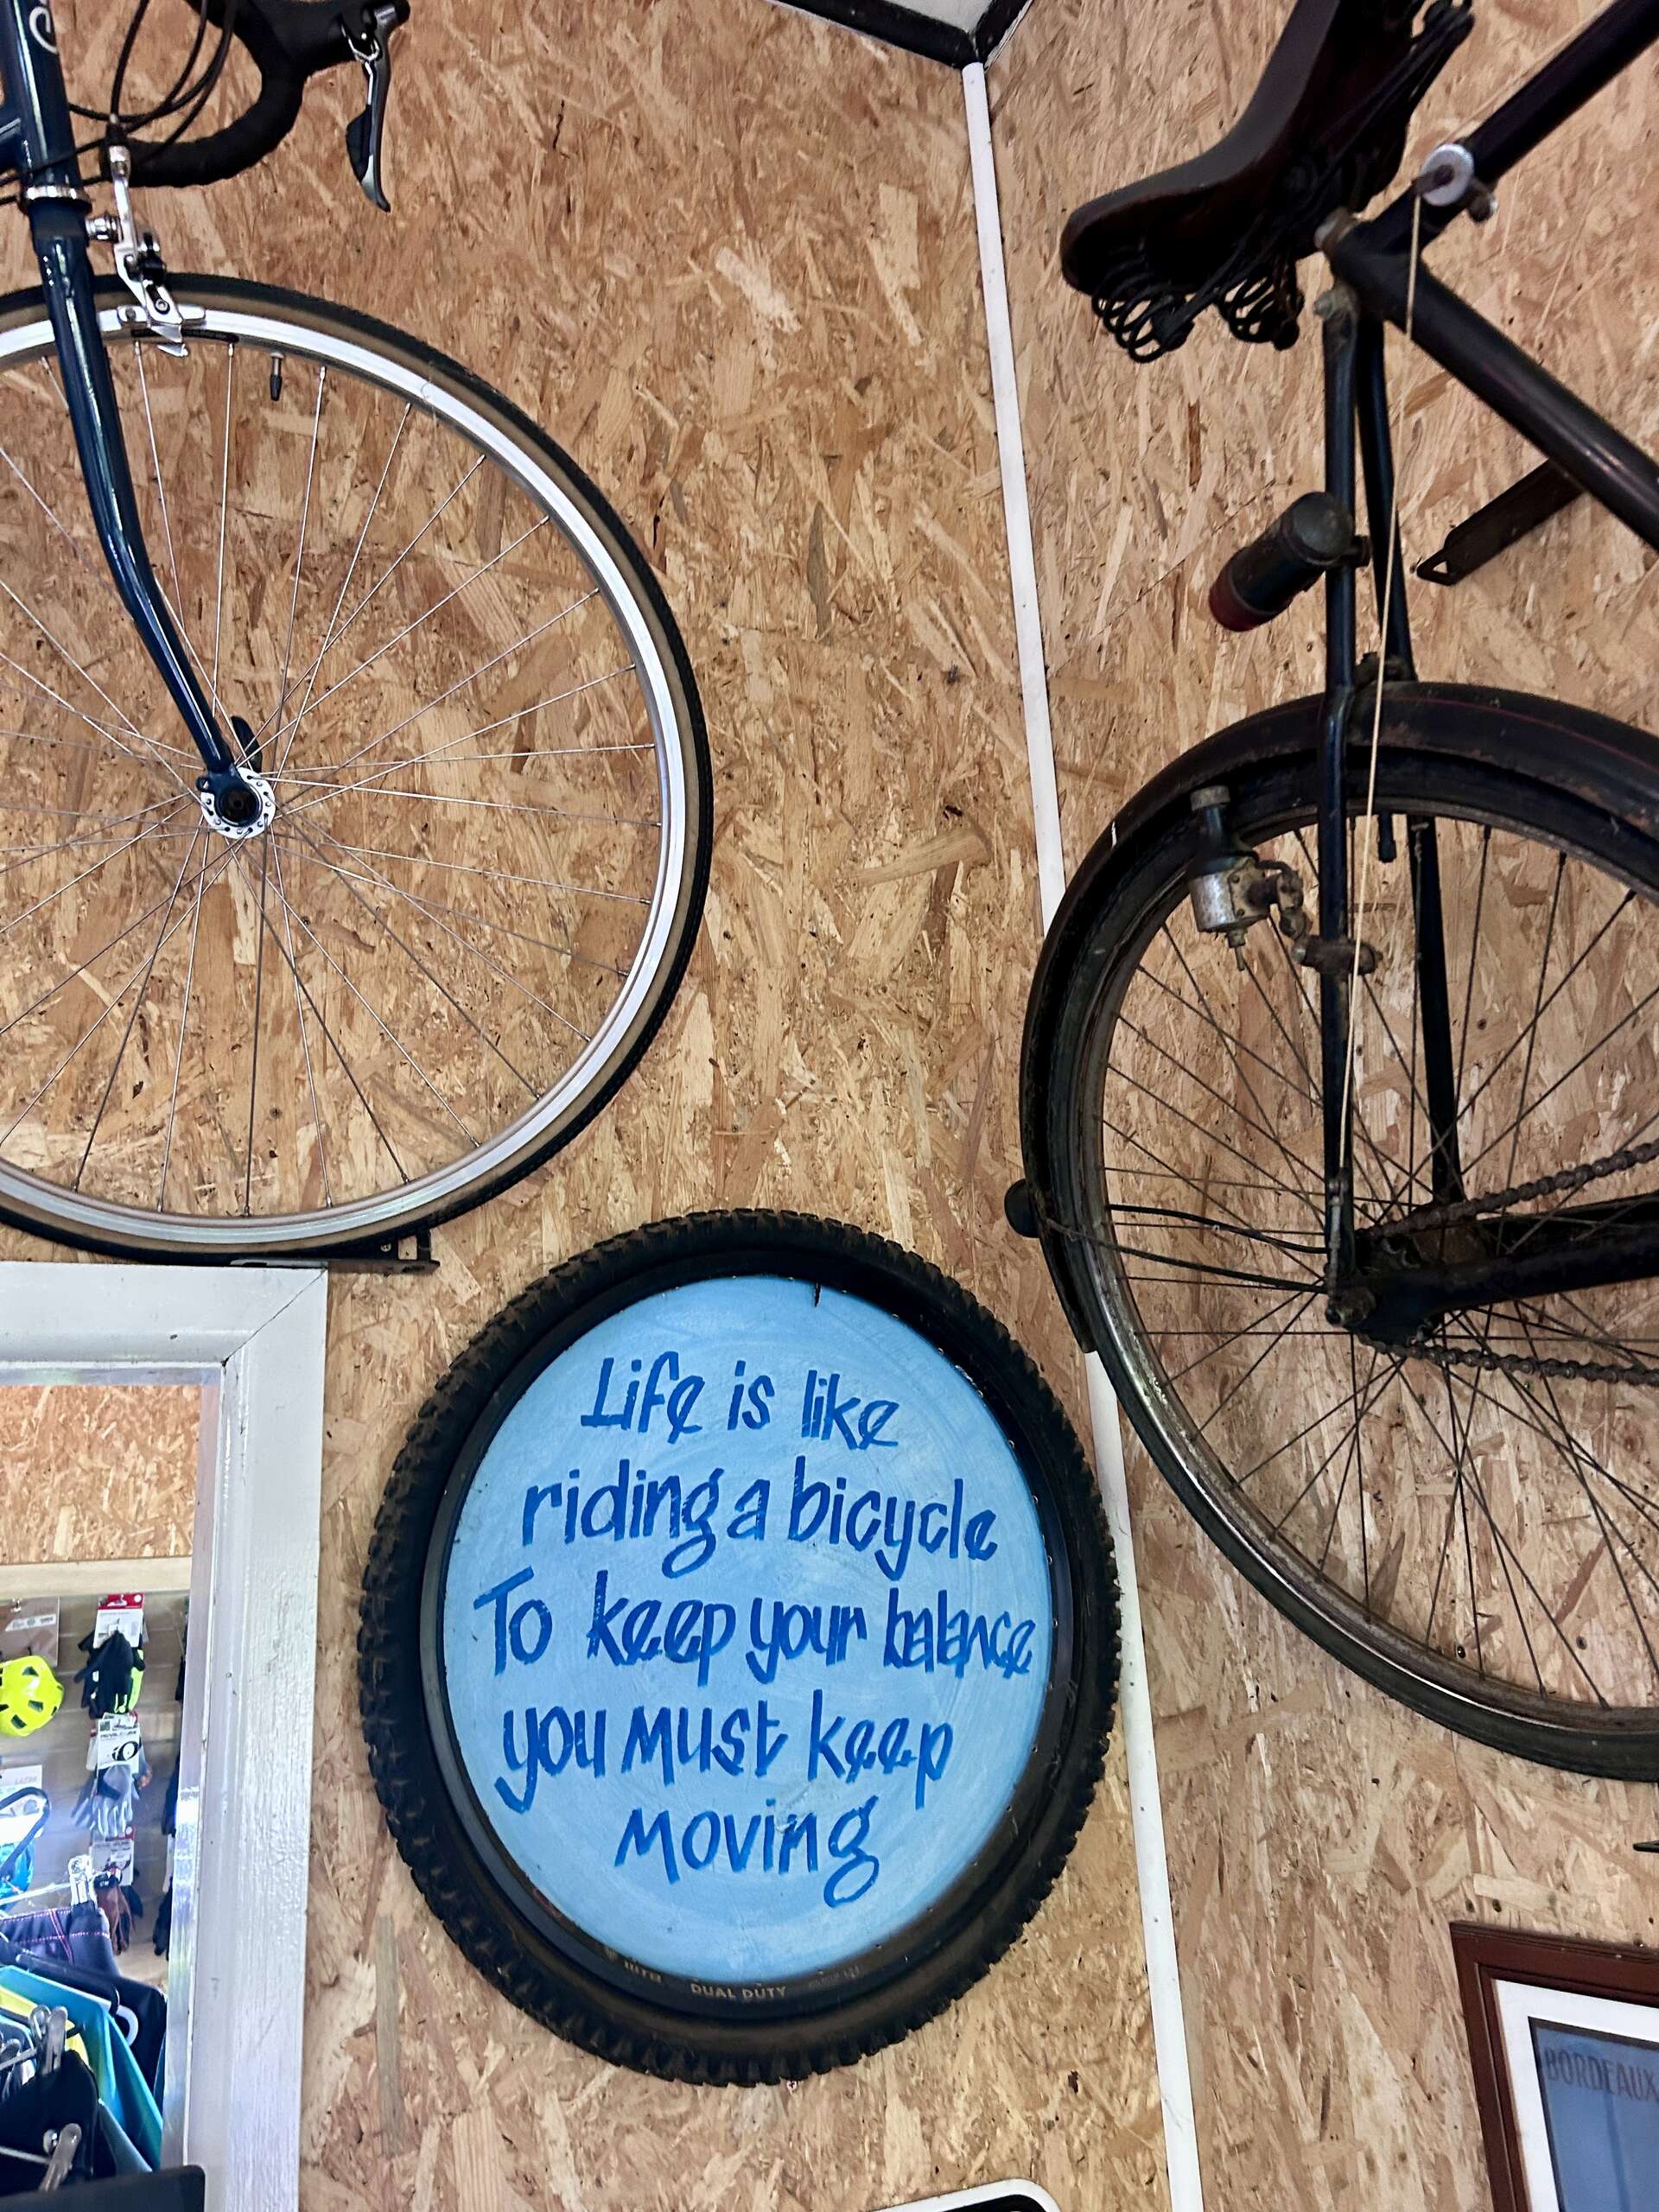 Life is like
riding a bicycle
To keep your balance
you must keep
moving
DUAL DUTY
BORDEAUX